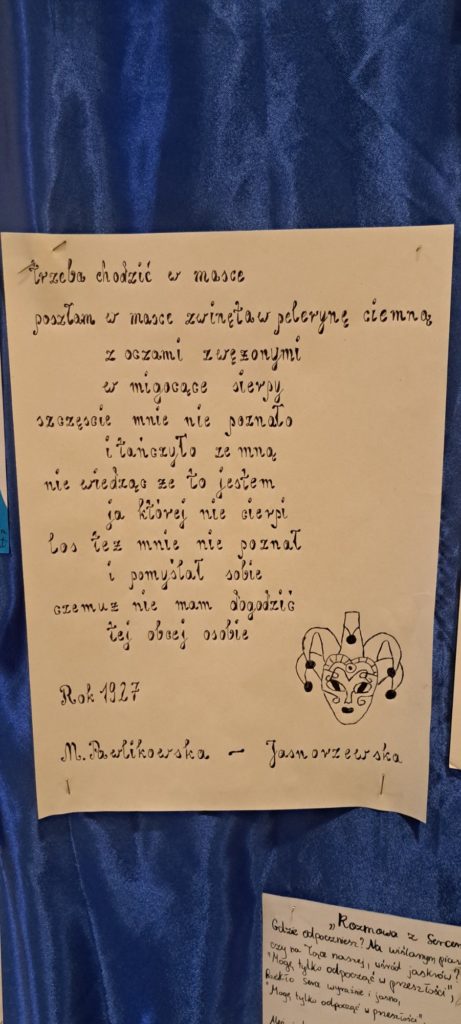 trzeba chodzić w masce
poszłam w masce zwinęta w pelerynę ciemną
z oczami zwężonymi
w migocące sierpy
szczęście mnie nie poznało
i tańczyło ze mną
nie wiedząc ze to jestem
ja której nie cierpi
los tez mnie nie poznał
i pomyślał sobie
czemuz nie mam dogodzić
tej obcej osobie
Rok 1927
M. Pawlikowska - Jasnorzewska
„Rozmowa z Sercem
Gdzie odpoczniesz? Na wiślanym
czy na Łące naszej, wśród jaskrów?
"Mogę tylko odpocząć w przeszłości"
Rzekło Serce wyraźnie i jasno,
"Mogę tylko odpocząć w przeszłości"